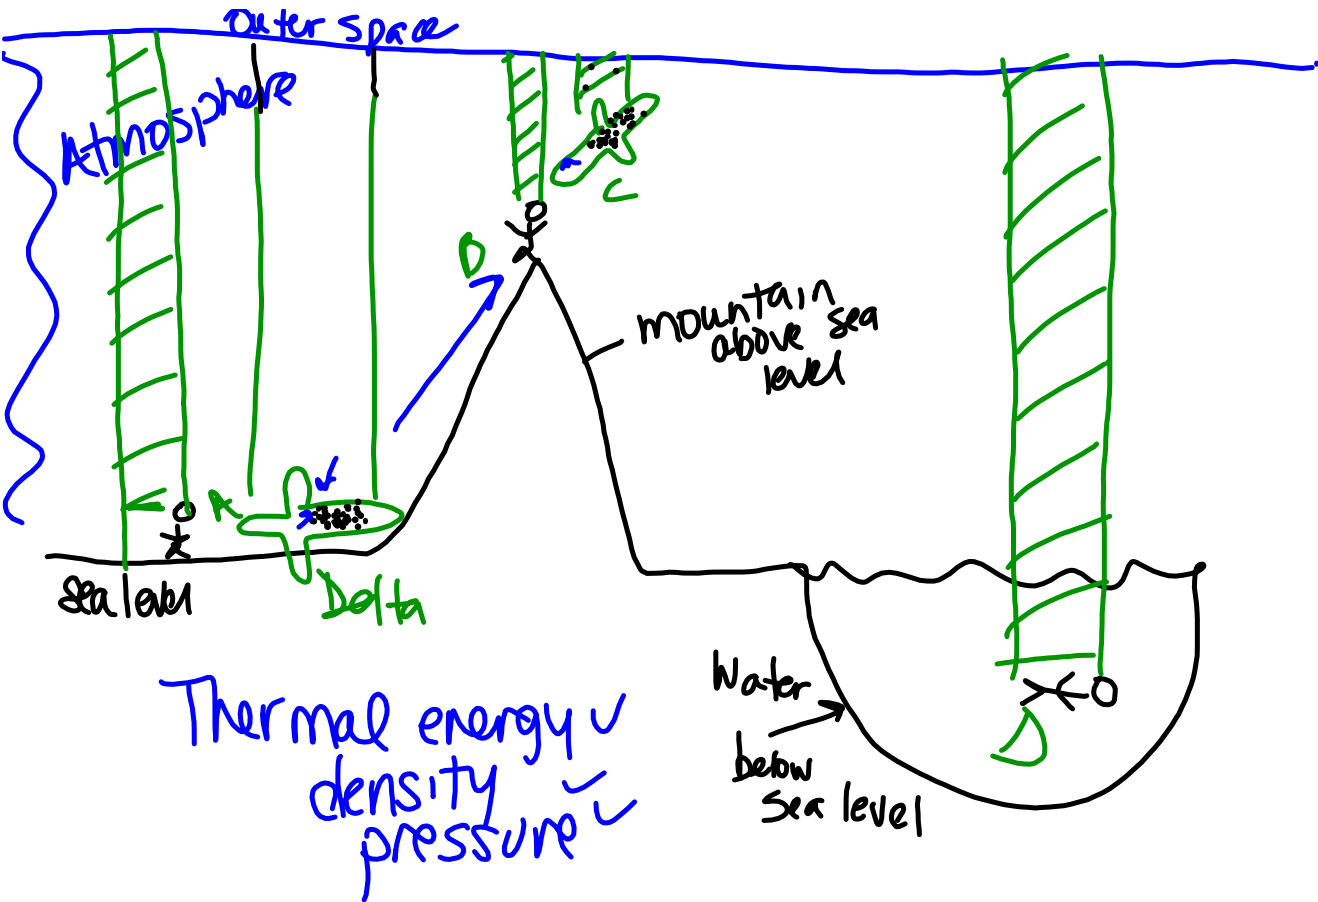 outer space
Atmosphere
B
C
mountain
above sea
level
A
sea level
Delta
Water
below
sea level
D
Thermal energy ✓
density ✓
pressure ✓